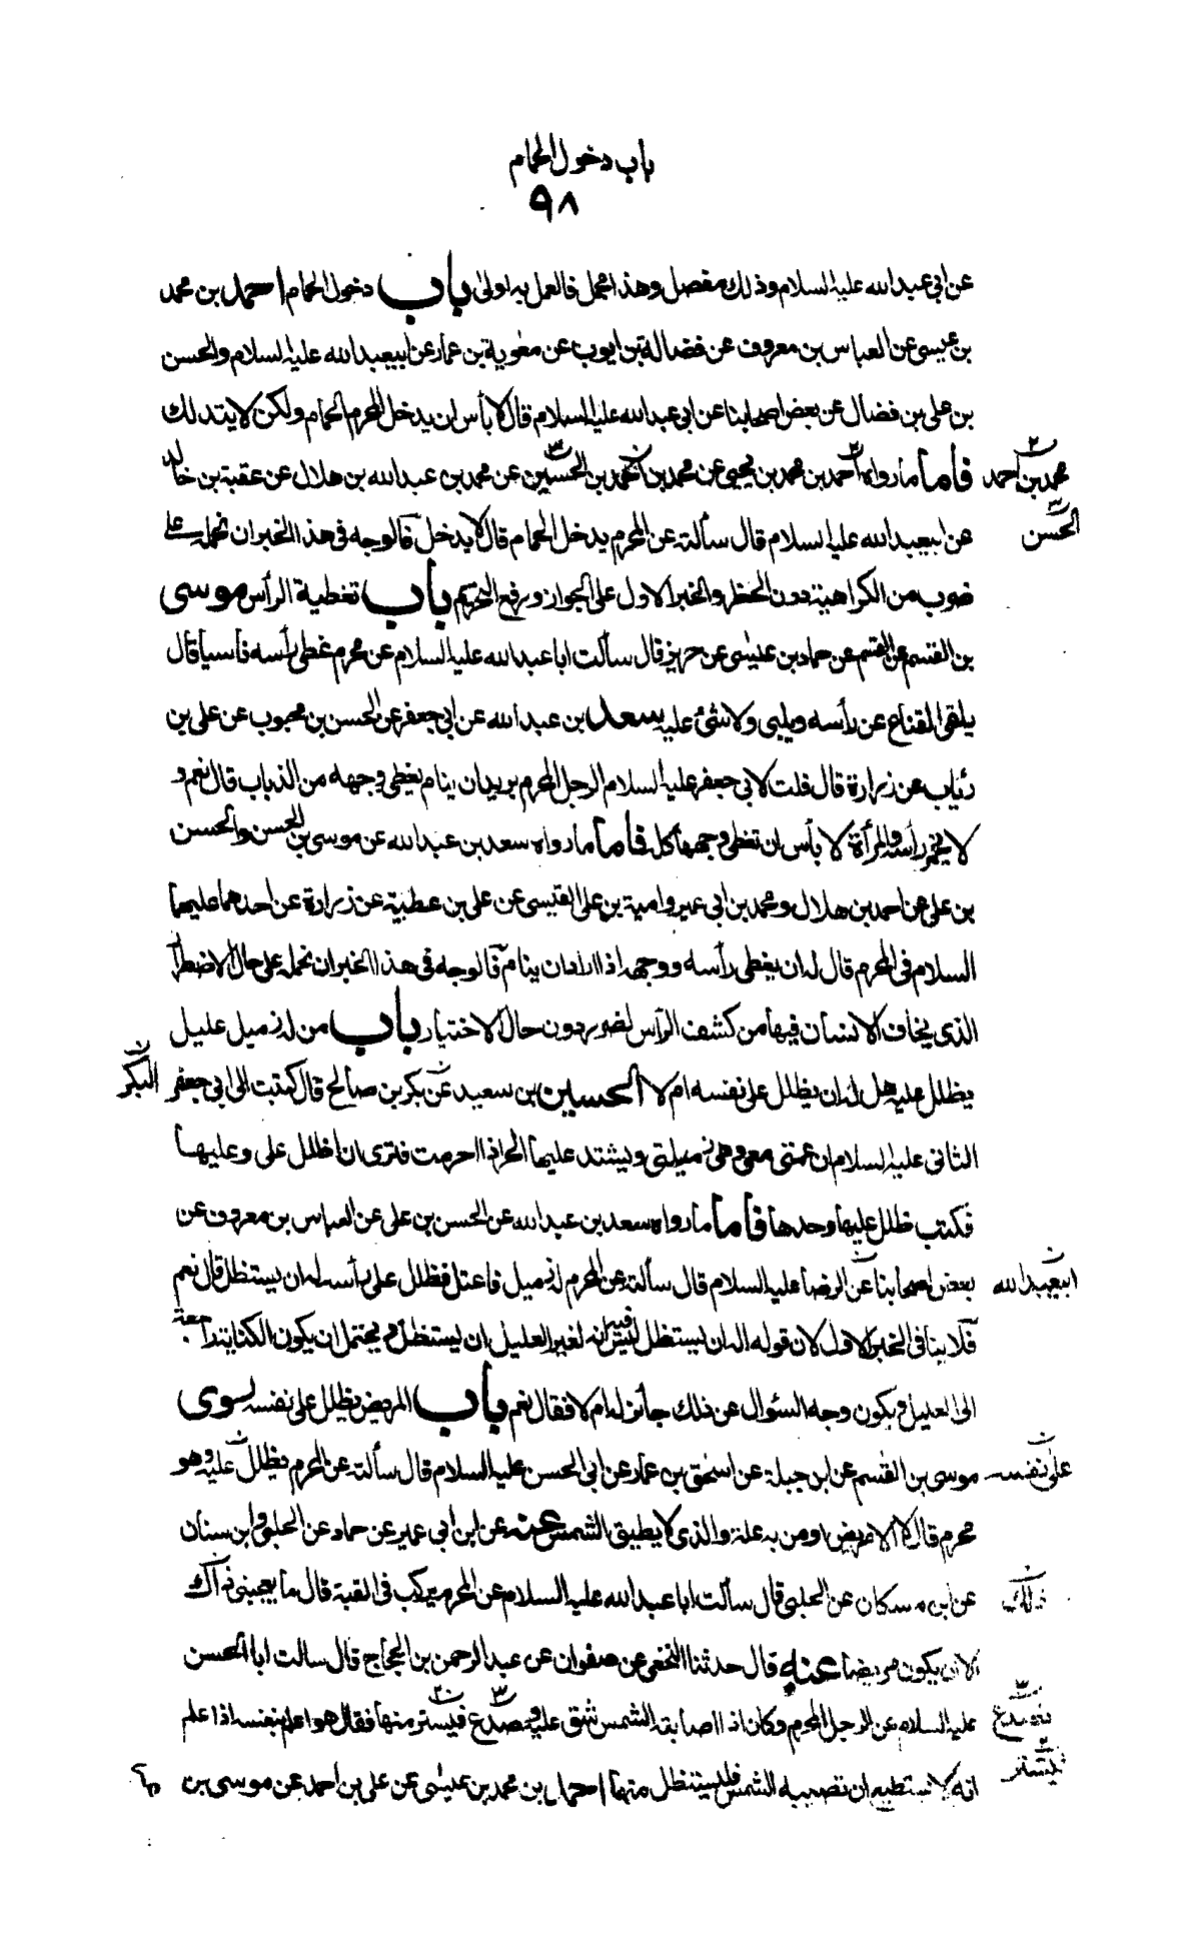 باب دخول الحمام
٩٨
عن ابي عبد الله عليه السلام وذلك مفصل وهذا مجمل فالعمل به اولى باب دخول الحمام احمد بن محمد
بن عيسى عن العباس بن معروف عن فضالة بن ايوب عن معوية بن عمار عن ابيعبد الله عليه السلام والحسن
بن علي بن فضال عن بعض اصحابنا عن ابي عبد الله عليه السلام قال لا بأس ان يدخل المحرم الحمام ولكن لا يتدلك
محمد بن احمد
فاما ما رواه احمد بن محمد بن يحيى عن محمد بن احمد بن الحسين عن محمد بن عبد الله بن هلال عن عقبة بن خالد
الحسن
عن ابيعبد الله عليه السلام قال سألته عن المحرم يدخل الحمام قال لا يدخل فالوجه في هذا الخبر ان نحمله على
ضرب من الكراهية دون الحظر والخبر الاول على الجواز ورفع التحريم باب تغطية الرأس موسى
بن القسم عن حماد بن عيسى عن حريز قال سألت ابا عبد الله عليه السلام عن محرم غطى رأسه ناسيا قال
يلقى القناع عن رأسه ويلبى ولا شئ عليه سعد بن عبد الله عن ابي جعفر عن الحسن بن محبوب عن علي بن
رئاب عن زرارة قال قلت لابي جعفر عليه السلام الرجل المحرم يريد ان ينام يغطى وجهه من الذباب قال نعم و
لا يخمر رأسه والمرأة لا بأس ان تغطى وجهها كله فاما ما رواه سعد بن عبد الله عن موسى بن الحسن والحسن
بن علي عن احمد بن هلال ومحمد بن ابي عمير وامية بن علي القيسى عن علي بن عطية عن زرارة عن احدهما عليهما
السلام في المحرم قال له ان يغطى رأسه ووجهه اذا اراد ان ينام فالوجه في هذا الخبر ان نحمله على حال الاضطرار
الذي يخاف الانسان فيها من كشف الرأس لضرر دون حال الاختيار باب من له زميل عليل
البكر
يظلل عليه هل له ان يظلل على نفسه ام لا الحسين بن سعيد عن بكر بن صالح قال كتبت الى ابي جعفر
الثانى عليه السلام ان عمتي معي وهي زميلتي ويشتد عليها الحر اذا احرمت فترى ان اظلل علي وعليها
فكتب ظلل عليها وحدها فاما ما رواه سعد بن عبد الله عن الحسن بن علي عن العباس بن معروف عن
ابيعبد الله
بعض اصحابنا عن الرضا عليه السلام قال سألته عن المحرم له زميل فاعتل فظلل على رأسه له ان يستظل قال نعم
فلا ينافى الخبر الاول لان قوله اله ان يستظل ليس فيه انه لغير العليل ان يستظل ويحتمل ان يكون الكناية راجعة
الى العليل ويكون وجه السؤال عن ذلك جائز له ام لا فقال نعم باب المريض يظلل على نفسه روى
على نفسه
موسى بن القسم عن ابن جبلة عن اسحق بن عمار عن ابي الحسن عليه السلام قال سألته عن المحرم يظلل عليه وهو
محرم قال لا الا مريض او من به علة والذى لا يطيق الشمس عنه عن ابن ابي عمير عن حماد عن الحلبي وابن سنان
ذلك
عن ابن مسكان عن الحلبي قال سألت ابا عبد الله عليه السلام عن المحرم يركب في القبة قال ما يعجبني ذاك
الا ان يكون مريضا عنه قال حدثنا النخعي عن صفوان عن عبد الرحمن بن الحجاج قال سالت ابا الحسن
عليه السلام عن الرجل المحرم وكان اذا اصابته الشمس شق عليه وصدع فيستتر منها فقال هو اعلم بنفسه اذا علم
انه لا يستطيع ان تصيبه الشمس فليستظل منها احمد بن محمد بن عيسى عن علي بن احمد عن موسى بن